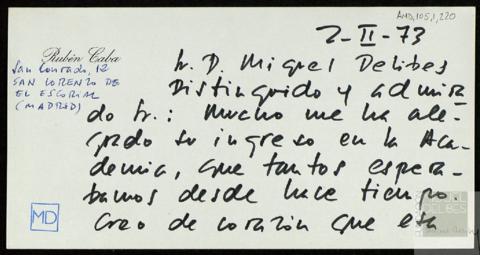 AMD,105,1,220
2-II-73
Rubén Caba
San Conrado, 12
SAN LORENZO DE
EL ESCORIAL
(MADRID)
Sr. D. Miguel Delibes
Distinguido y admira-
do Sr.: Mucho me ha ale-
grado su ingreso en la Aca-
demia, que tantos espera-
bamos desde hace tiempo.
Creo de corazón que esta
MD